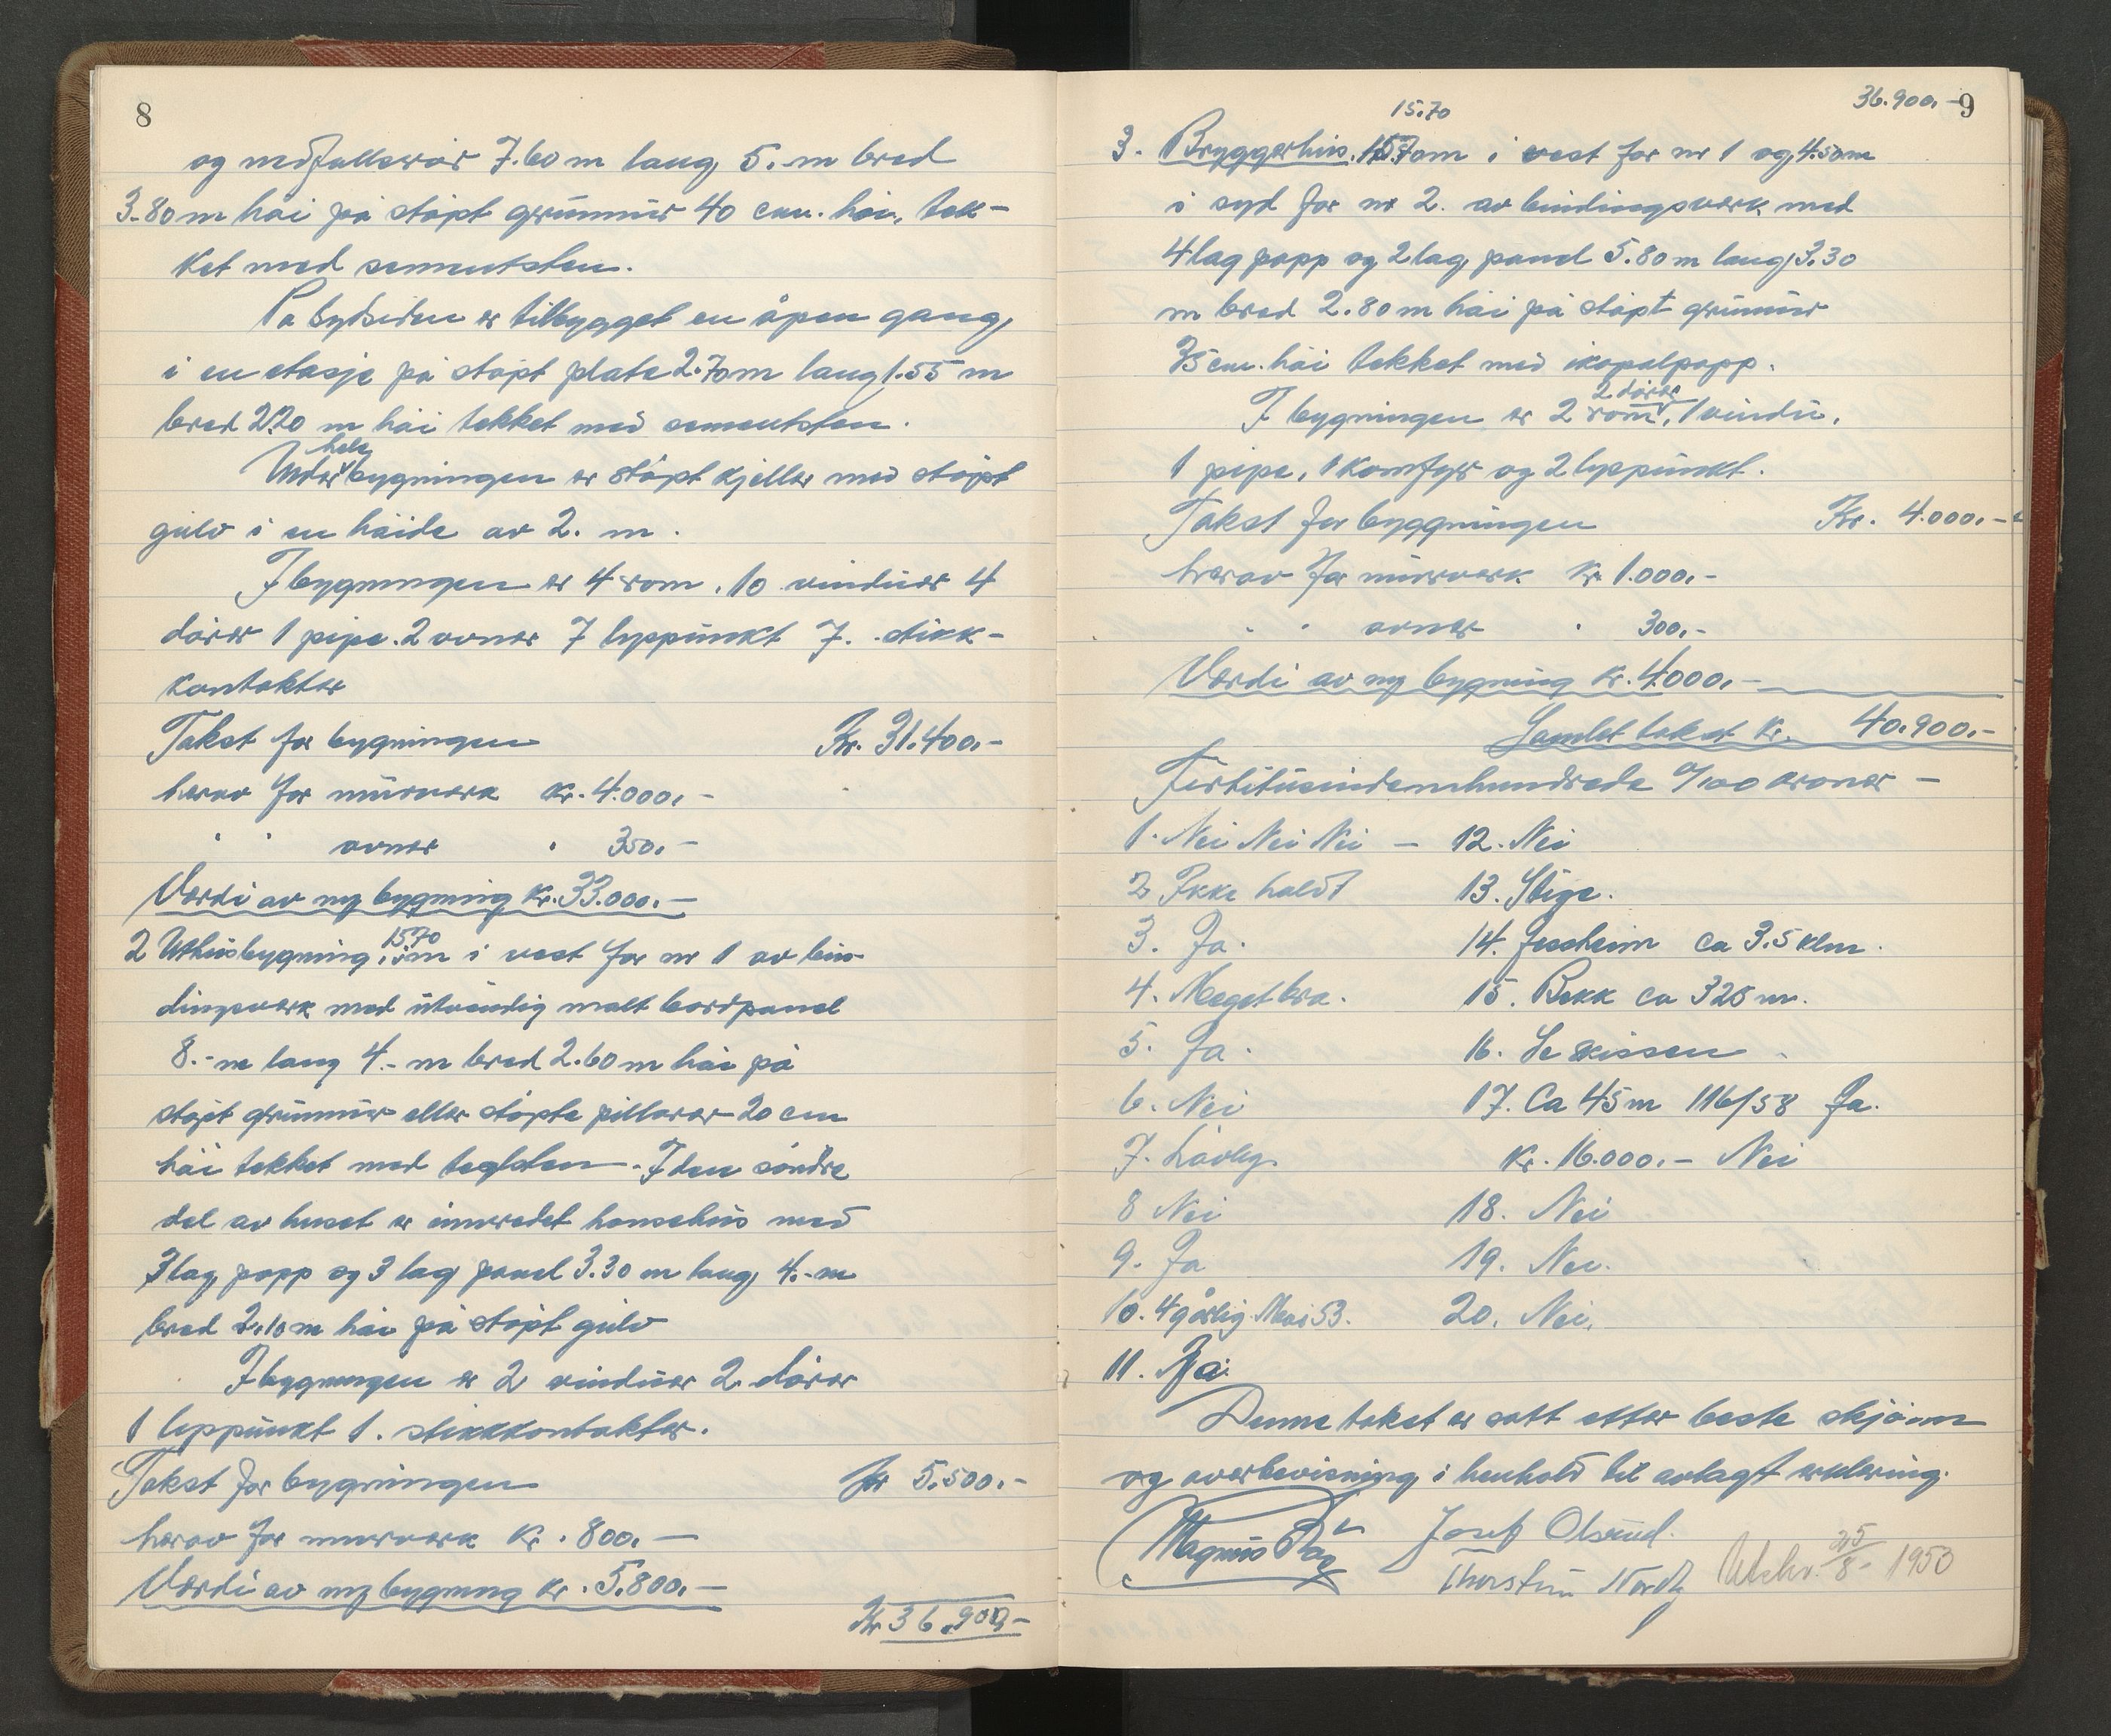 8
og nedfallsrør 7.60 m lang 5.-m bred
3.80 m høi på støpt grunnur 40 cm. høi, tek-
ket med sementsten.
På Sydsiden er tilbygget en åpen gang,
i en etasje på støpt plate 2.70 m lang 1.55 m
bred 2.20 m høi tekket med sementsten.
hele
Under bygningen er støpt kjeller med støpt
gulv i en høide av 2. m.
I bygningen er 4 rom. 10 vinduer 4
dører 1 pipe. 2 ovner 7 lyspunkt 7. stikk-
kontakter
Takst for bygningen Kr. 31.400.-
herav for murverk Kr. 4.000.-
" " ovner " 350.-
Verdi av ny bygning Kr. 33.000.-
15.70
2 Uthusbygning, m i vest for nr 1 av bin-
dingsverk med utvendig malt bordpanel
8.-m lang 4.-m bred 2.60 m høi på
støpt grunnur eller støpte pillarer 20 cm
høi tekket med teglsten. I den søndre
del av huset er innredet hønsehus med
3 lag papp og 3 lag panel 3.30 m lang, 4.-m
bred 2.10 m høi på støpt gulv
I bygningen er 2 vinduer 2. dører
1 lyspunkt 1. stikkkontakter.
Takst for bygningen Kr 5.500.-
herav for murverk Kr. 800.-
Verdi av ny bygning Kr. 5.800.-
Kr 36.900.-
36.900.- 9
15.70
3. Bryggerhus. m i vest for nr 1 og 4.50 m
i syd for nr 2. av bindingsverk med
4 lag papp og 2 lag, panel 5.80 m lang 3.30
m bred 2.80 m høi på støpt grunnur
75 cm. høi tekket med ikopalpapp.
2 dører
I bygningen er 2 rom, 1 vindu,
1 pipe, 1 komfyr og 2 lyspunkt.
Takst for byggningen Kr. 4.000.-
herav for murverk Kr 1.000.-
" " ovner " 300.-
Verdi av ny bygning Kr. 4.000.-
Samlet takst Kr. 40.900.-
Førtitusindenihundrede 0/100 kroner -
1. Nei Nei Nei - 12. Nei
2 Ikke holdt 13. Stige.
3. Ja. 14. Jessheim ca 3.5 klm.
4. Meget bra. 15. Bekk ca 325 m.
5. Ja. 16. Se skissen.
6. Nei 17. Ca 45 m 116/58 Ja.
7. Lovlig. Kr. 16.000.- Nei
8 Nei 18. Nei
9. Ja 19. Nei.
10. 4 gårlig. Mai 53. 20. Nei.
11.
Denne takst er satt etter beste skjønn
og overbevisning, i henhold til avlagt erklæring.
Magnus Dag Josef Olsrud.
Thorstein Nordby Utskr. 25/8- 1950